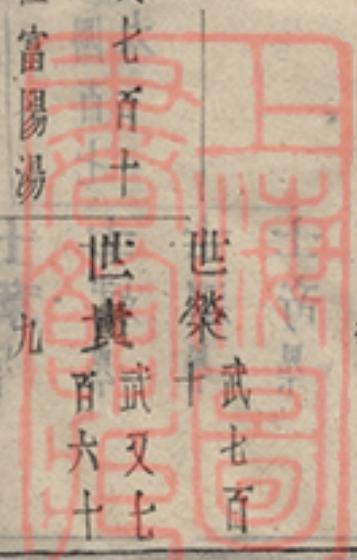 世榮
武七百
十
七百十
世貴
武又七
百六十
富陽湯
九